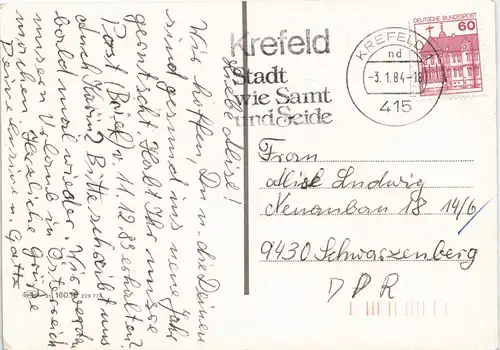 Liebe Alise!
Wir hoffen, Du u. die Deinen
sind gesund ins neue Jahr
gerutscht. Habt Ihr unsere
Post (Brief) v. 11.12.83 erhalten?
durch Karin? Bitte schreibt uns
bald mal wieder. Wir werden
unseren Urlaub in Österreich
machen. Herzliche Grüße
Deine u. Gatte
160. 329 77
Krefeld
Stadt
wie Samt
und Seide
KREFELD
nd
-3.1.84-18
415
DEUTSCHE BUNDESPOST
60
Frau
Alise Ludwig
Neuanbau 18 14/6
9430 Schwarzenberg
DDR